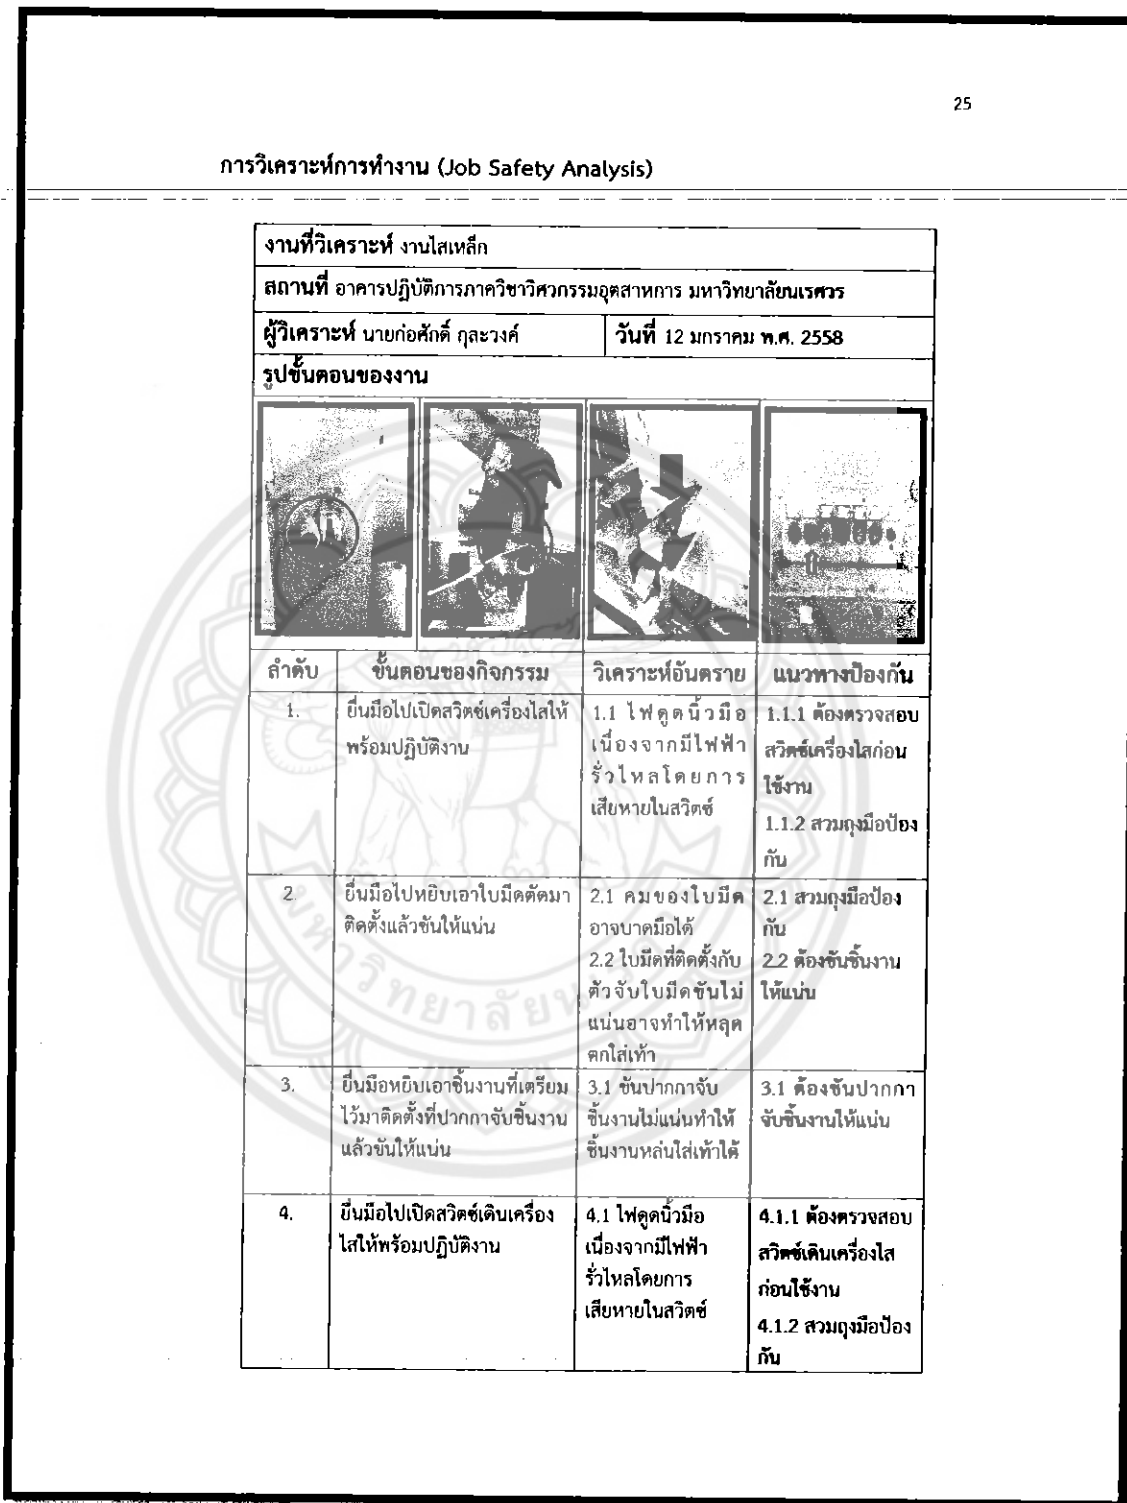 25
การวิเคราะห์การทำงาน (Job Safety Analysis)
งานที่วิเคราะห์ งานไสเหล็ก
สถานที่ อาคารปฏิบัติการภาควิชาวิศวกรรมอุตสาหการ มหาวิทยาลัยนเรศวร
ผู้วิเคราะห์ นายก่อศักดิ์ กุละวงค์
วันที่ 12 มกราคม พ.ศ. 2558
รูปขั้นตอนของงาน
ลำดับ ขั้นตอนของกิจกรรม วิเคราะห์อันตราย แนวทางป้องกัน
1.
ยื่นมือไปเปิดสวิตซ์เครื่องไสให้
พร้อมปฏิบัติงาน
1.1 ไฟดูดนิ้วมือ
เนื่องจากมีไฟฟ้า
รั่วไหลโดยการ
เสียหายในสวิตซ์
1.1.1 ต้องตรวจสอบ
สวิตซ์เครื่องไสก่อน
ใช้งาน
1.1.2 สวมถุงมือป้อง
กัน
2.
ยื่นมือไปหยิบเอาใบมีดตัดมา
ติดตั้งแล้วขันให้แน่น
2.1 คมของใบมีด
อาจบาดมือได้
2.2 ใบมีดที่ติดตั้งกับ
ตัวจับใบมีดขันไม่
แน่นอาจทำให้หลุด
ตกใส่เท้า
2.1 สวมถุงมือป้อง
กัน
2.2 ต้องขันชิ้นงาน
ให้แน่น
3.
ยื่นมือหยิบเอาชิ้นงานที่เตรียม
ไว้มาติดตั้งที่ปากกาจับชิ้นงาน
แล้วขันให้แน่น
3.1 ขันปากกาจับ
ชิ้นงานไม่แน่นทำให้
ชิ้นงานหล่นใส่เท้าได้
3.1 ต้องขันปากกา
จับชิ้นงานให้แน่น
4.
ยื่นมือไปเปิดสวิตซ์เดินเครื่อง
ไสให้พร้อมปฏิบัติงาน
4.1 ไฟดูดนิ้วมือ
เนื่องจากมีไฟฟ้า
รั่วไหลโดยการ
เสียหายในสวิตซ์
4.1.1 ต้องตรวจสอบ
สวิตซ์เดินเครื่องไส
ก่อนใช้งาน
4.1.2 สวมถุงมือป้อง
กัน